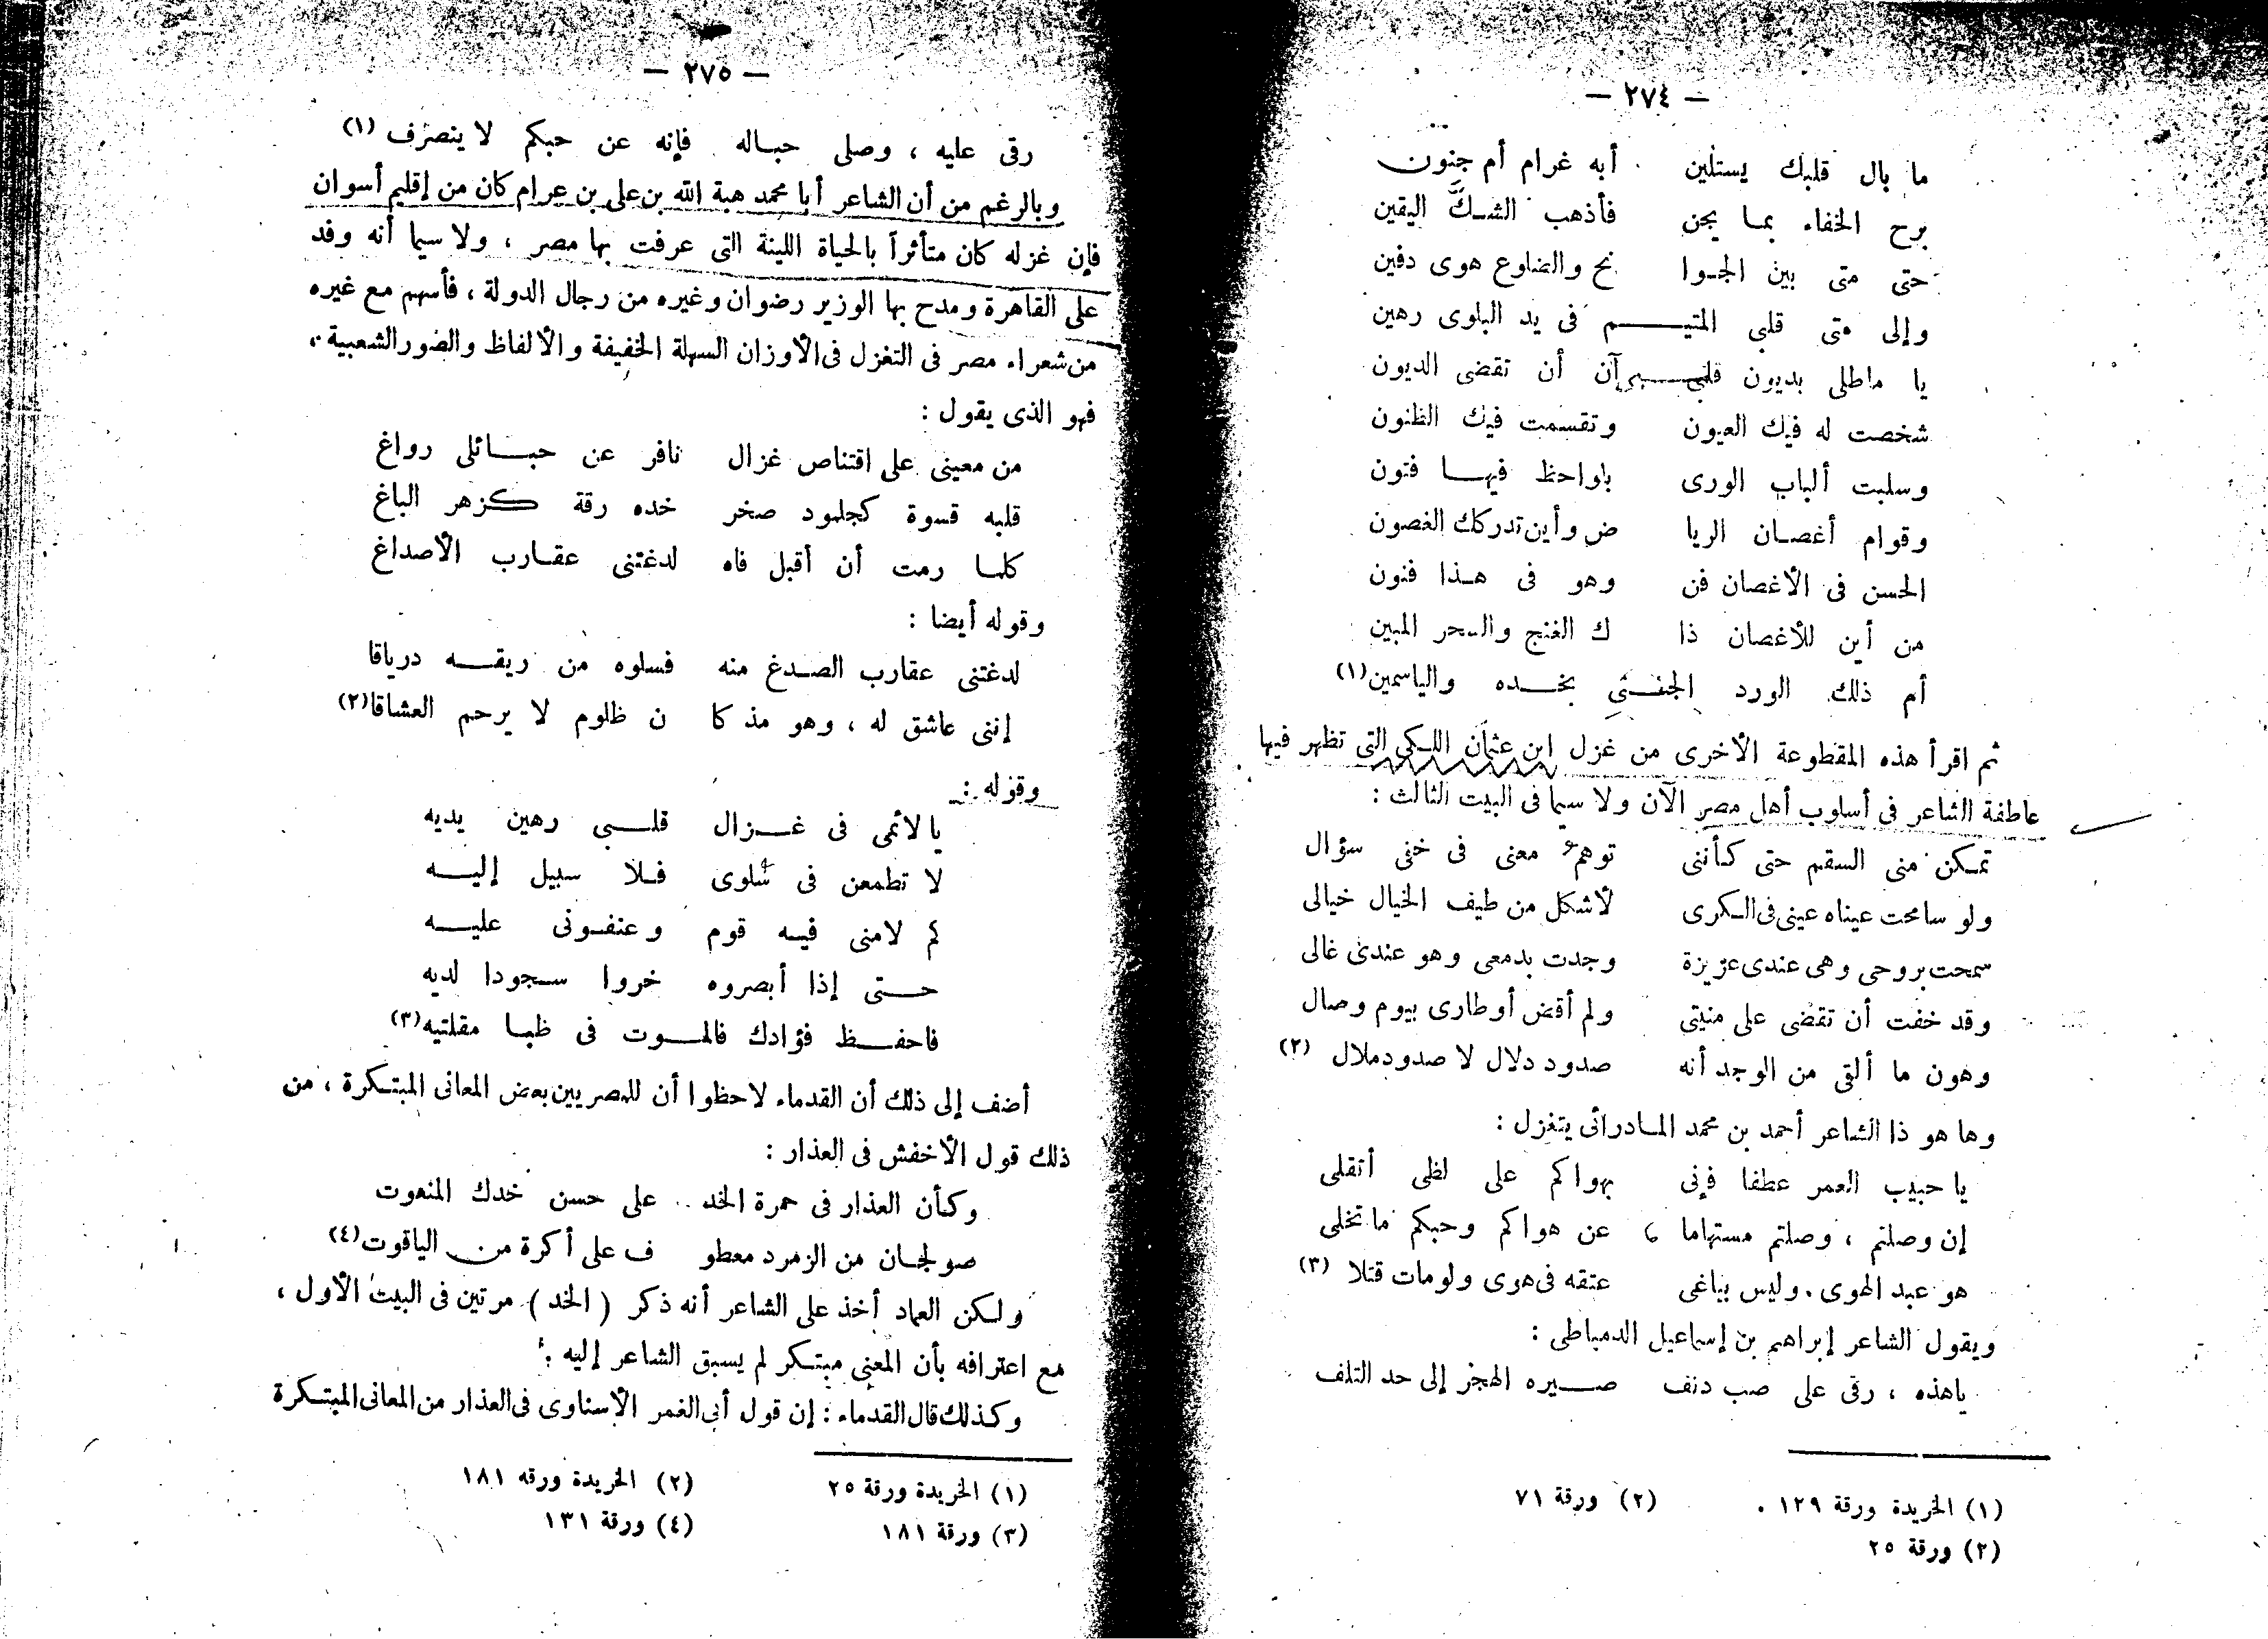 — ٢٧٤ —
ما بال قلبك يستلين أبه غرام أم جنون
برح الخفاء بما يجن فأذهب الشك اليقين
حتى متى بين الجوا نح والضلوع هوى دفين
وإلى متى قلبى المتيـــم فى يد البلوى رهين
يا ماطلى بديون قلبـــى آن أن تقضى الديون
شخصت له فيك العيون وتقسمت فيك الظنون
وسلبت ألباب الورى بلواحظ فيهـا فتون
وقوام أغصـان الريا ض وأين تدركك الغصون
الحسن فى الأغصان فن وهو فى هـذا فنون
من أين للأغصان ذا ك الغنج والسحر المبين
أم ذلك الورد الجنـى بخـده والياسمين(١)
ثم اقرأ هذه المقطوعة الأخرى من غزل ابن عثمان اللكى التى تظهر فيها
عاطفة الشاعر فى أسلوب أهل مصر الآن ولا سيما فى البيت الثالث :
تمكن منى السقم حتى كأننى توهم معنى فى خفى سؤال
ولو سامحت عيناه عينى فى الكرى لأشكل من طيف الخيال خيالى
سمحت بروحى وهى عندى عزيزة وجدت بدمعى وهو عندى غالى
وقد خفت أن تقضى على منيتى ولم أقض أوطارى بيوم وصال
وهون ما ألقى من الوجد أنه صدود دلال لا صدود ملال (٢)
وها هو ذا الشاعر أحمد بن محمد المادرانى يتغزل :
يا حبيب العمر عطفا فإنى بهواكم على لظى أتقلى
إن وصلتم ، وصلتم مستهاما عن هواكم وحبكم ما تخلى
هو عبد الهوى . وليس بباغى عتقه فى هوى ولو مات قتلا (٣)
ويقول الشاعر إبراهيم بن إسماعيل الدمياطى :
يا هذه ، رقى على صب دنف صـيره الهجر إلى حد التلف
(١) الخريدة ورقة ١٢٩ . (٢) ورقة ٧١
(٢) ورقة ٢٥
— ٢٧٥ —
رقى عليه ، وصلى حبـاله فإنه عن حبكم لا ينصرف (١)
وبالرغم من أن الشاعر أبا محمد هبة الله بن على بن عرام كان من إقليم أسوان
فإن غزله كان متأثراً بالحياة اللينة التى عرفت بها مصر ، ولا سيما أنه وفد
على القاهرة ومدح بها الوزير رضوان وغيره من رجال الدولة ، فأسهم مع غيره
من شعراء مصر فى التغزل فى الأوزان السهلة الخفيفة والألفاظ والصور الشعبية ،
فهو الذى يقول :
من معينى على اقتناص غزال نافر عن حبـائلى رواغ
قلبه قسوة كجلمود صخر خده رقة كزهر الباغ
كلما رمت أن أقبل فاه لدغتنى عقـارب الأصداغ
وقوله أيضا :
لدغتنى عقارب الصـدغ منه فسلوه من ريقـه درياقا
إننى عاشق له ، وهو مذ كا ن ظلوم لا يرحم العشاقا(٢)
وقوله :
يا لائمى فى غـزال قلـبى رهين يديه
لا تطمعن فى سلوى فـلا سبيل إليـه
كم لامنى فيـه قوم وعنفـونى عليـه
حـتى إذا أبصروه خروا سـجودا لديه
فاحفـظ فؤادك فالمـوت فى ظبـا مقلتيه(٣)
أضف إلى ذلك أن القدماء لاحظوا أن للمصريين بعض المعانى المبتكرة ، من
ذلك قول الأخفش فى العذار :
وكأن العذار فى حمرة الخد على حسن خدك المنعوت
صولجـان من الزمرد معطو ف على أكرة من الياقوت(٤)
ولكن العماد أخذ على الشاعر أنه ذكر ( الخد ) مرتين فى البيت الأول ،
مع اعترافه بأن المعنى مبتكر لم يسبق الشاعر إليه .
وكذلك قال القدماء : إن قول أبى الغمر الإسناوى فى العذار من المعانى المبتكرة
(١) الخريدة ورقة ٢٥ (٢) الخريدة ورقه ١٨١
(٣) ورقة ١٨١ (٤) ورقة ١٣١